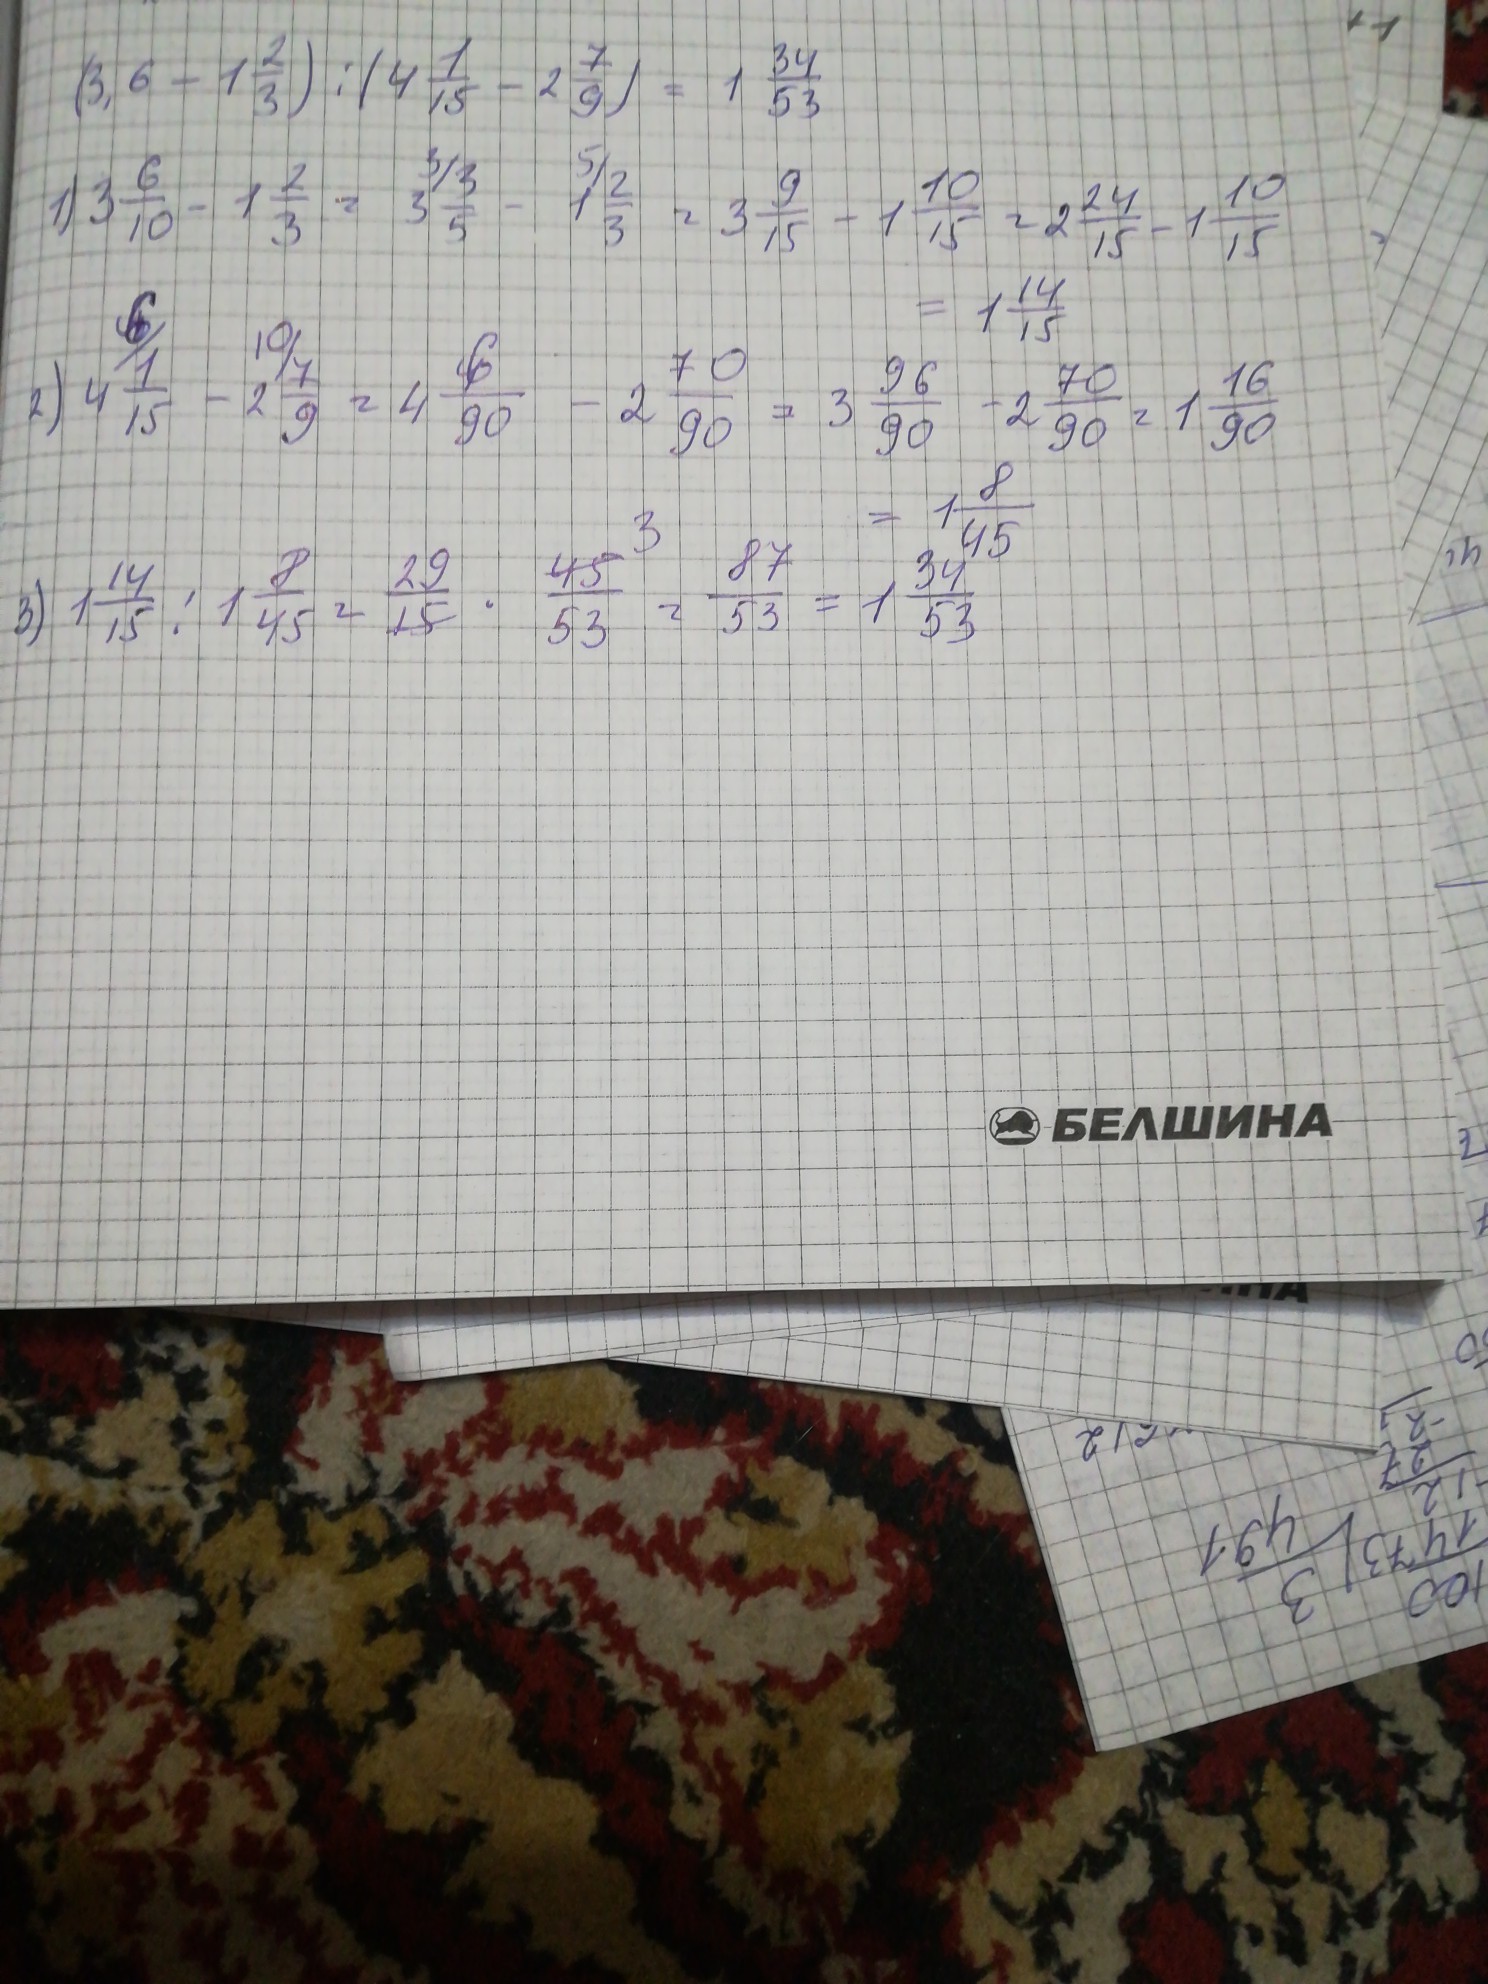 (3,6 - 1 2/3) : (4 1/15 - 2 7/9) = 1 34/53
1) 3 6/10 - 1 2/3 = 3 3/5 - 1 2/3 = 3 9/15 - 1 10/15 = 2 24/15 - 1 10/15
= 1 14/15
2) 4 1/15 - 2 7/9 = 4 6/90 - 2 70/90 = 3 96/90 - 2 70/90 = 1 16/90
= 1 8/45
3) 1 14/15 : 1 8/45 = 29/15 · 45/53 = 87/53 = 1 34/53
БЕЛШИНА
1473 3
491